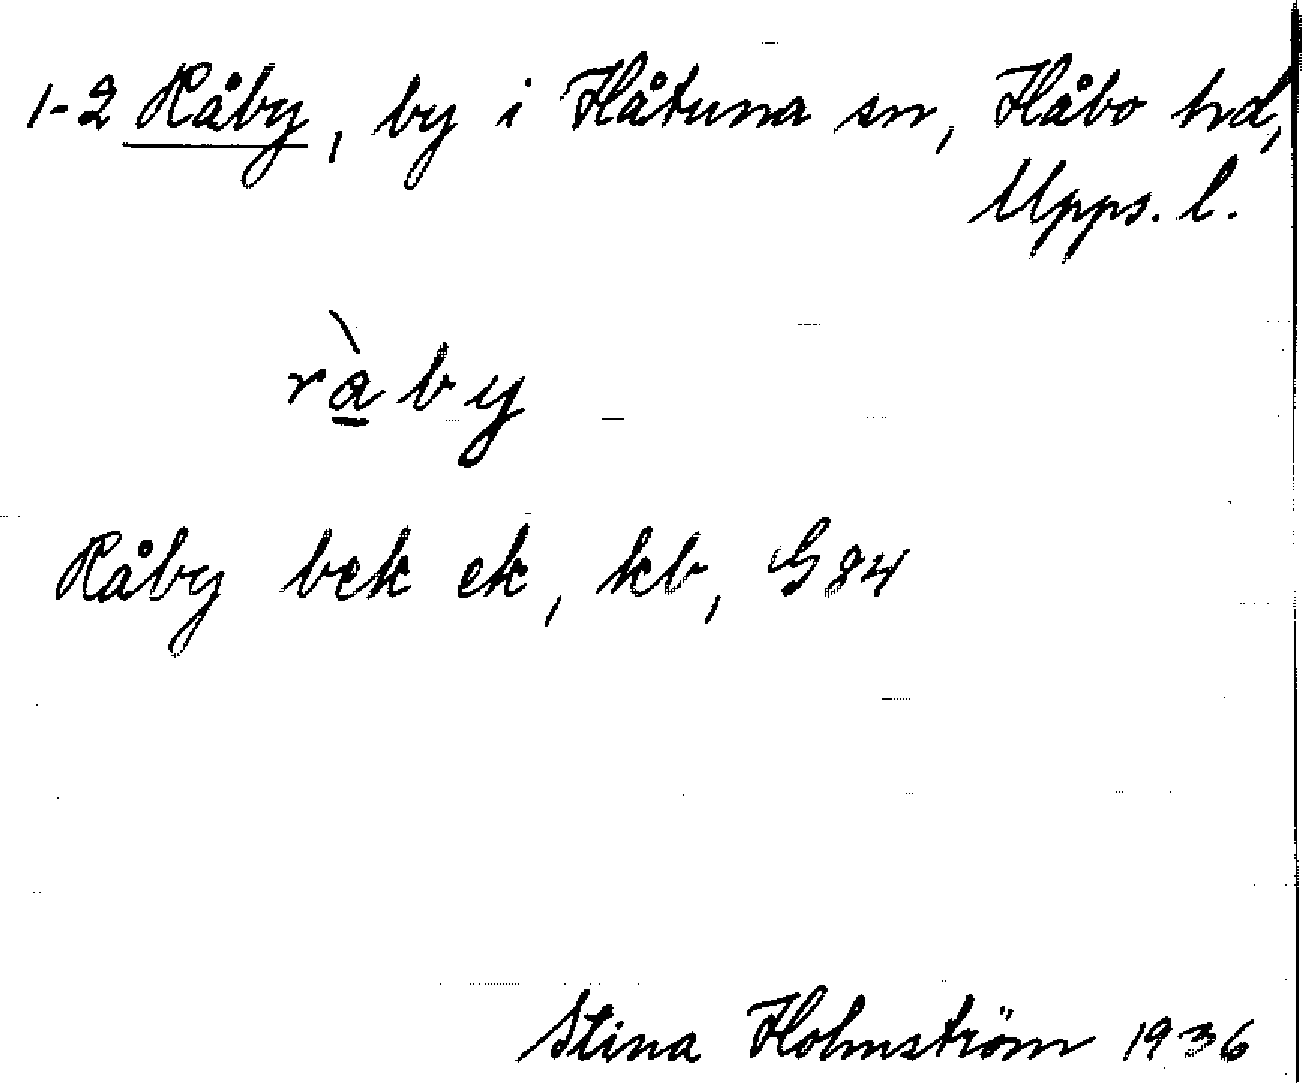 1-2 Råby, by i Håtuna sn, Håbo hd,
Upps. l.
ràby
Råby bek ek, kb, G 84
Stina Holmström 1936